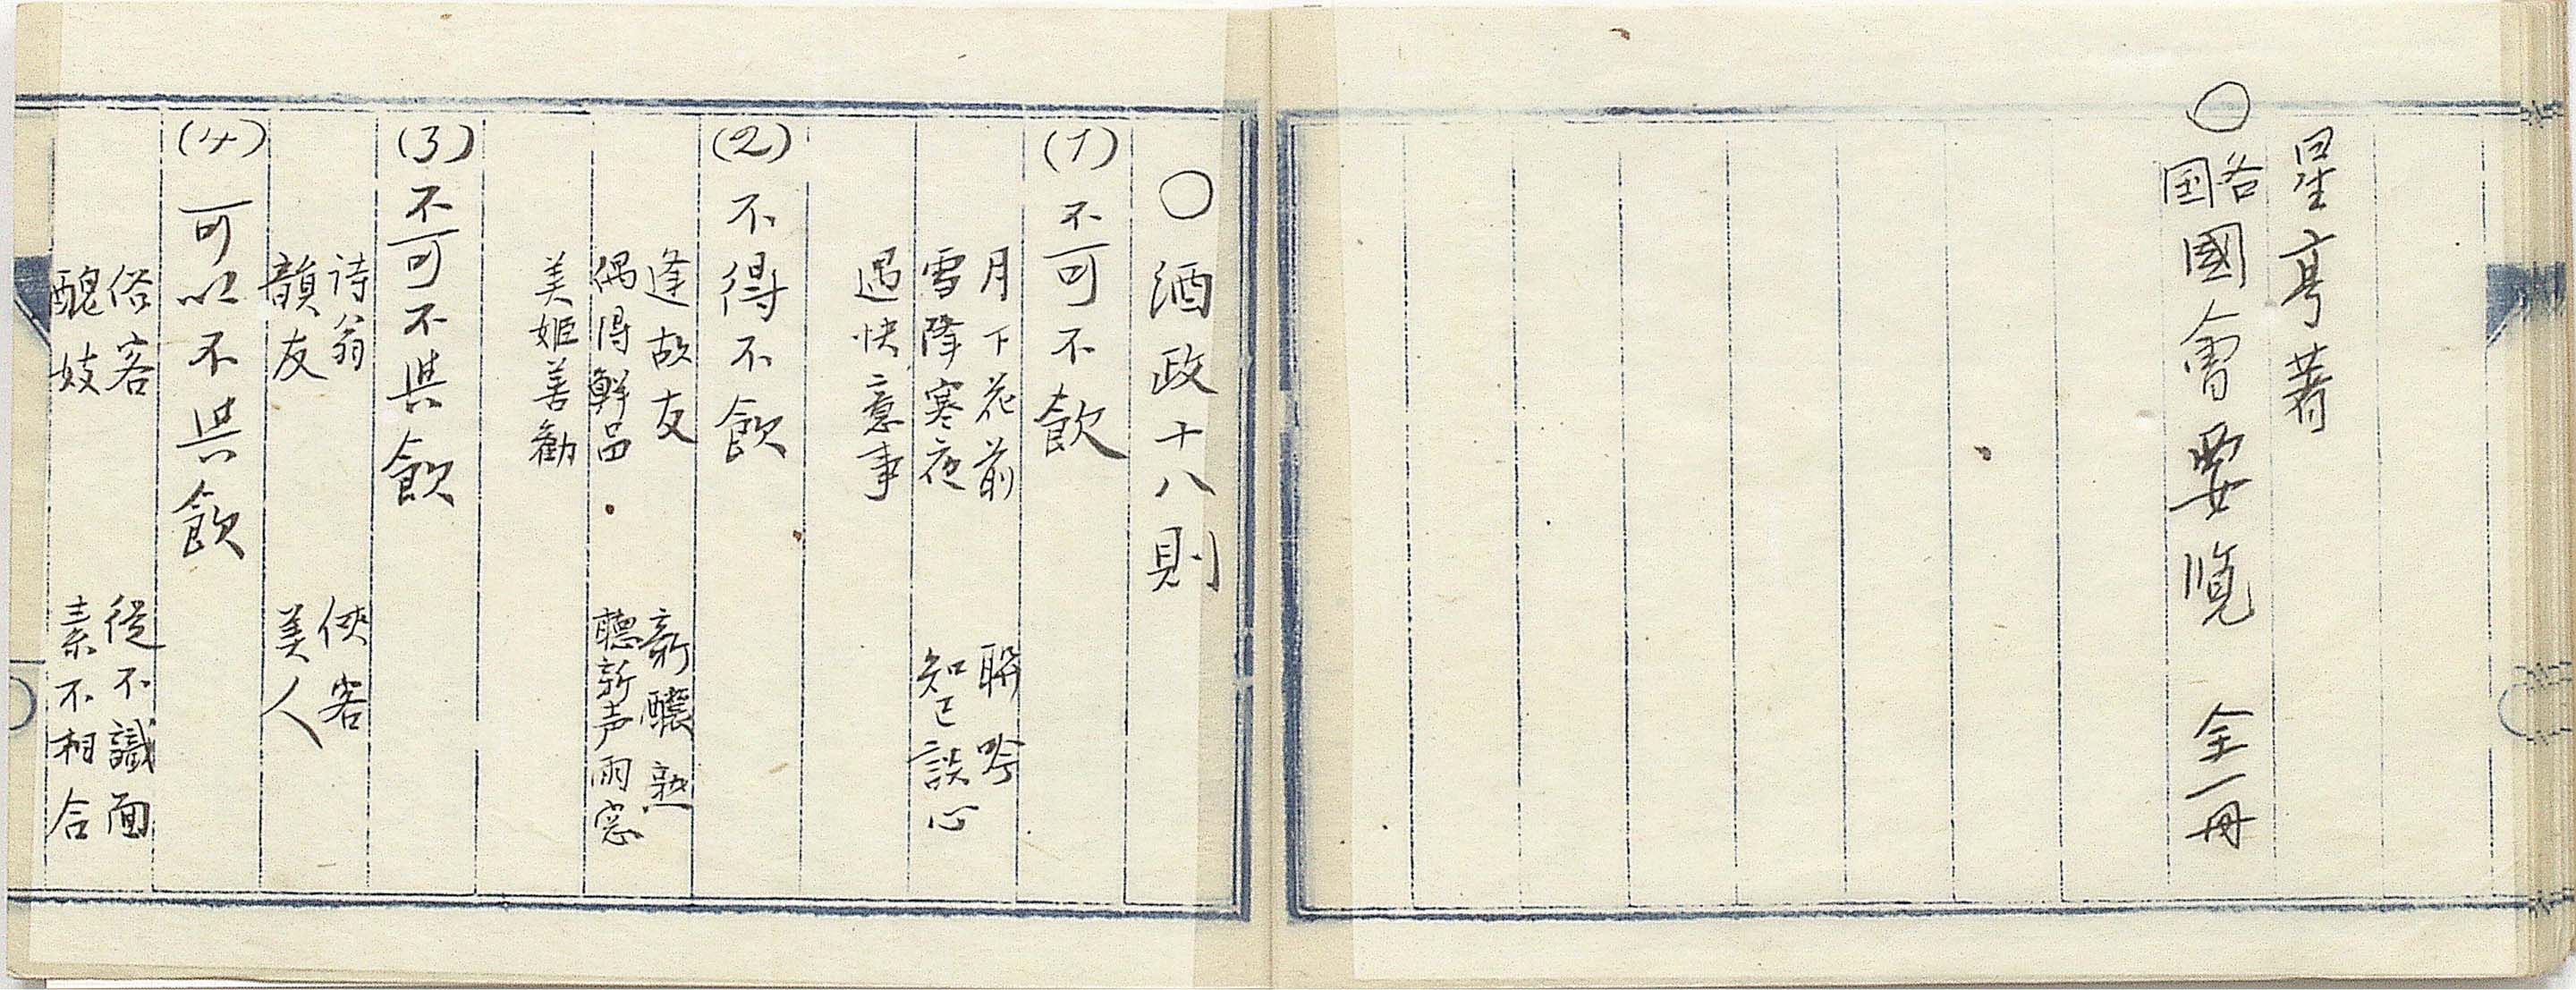 星亨著
○各国國會要覧 全一冊
○酒政十八則
(1)不可不飲
月下花前 聯吟
雪降寒夜 知己談心
遇快意事
(2)不得不飲
逢故友 新醸熟
偶得鮮品 聴新声雨窓
美姫善勧
(3)不可不與飲
诗翁 侠客
韻友 美人
(4)可以不與飲
俗客 従不識面
醜妓 素不相合